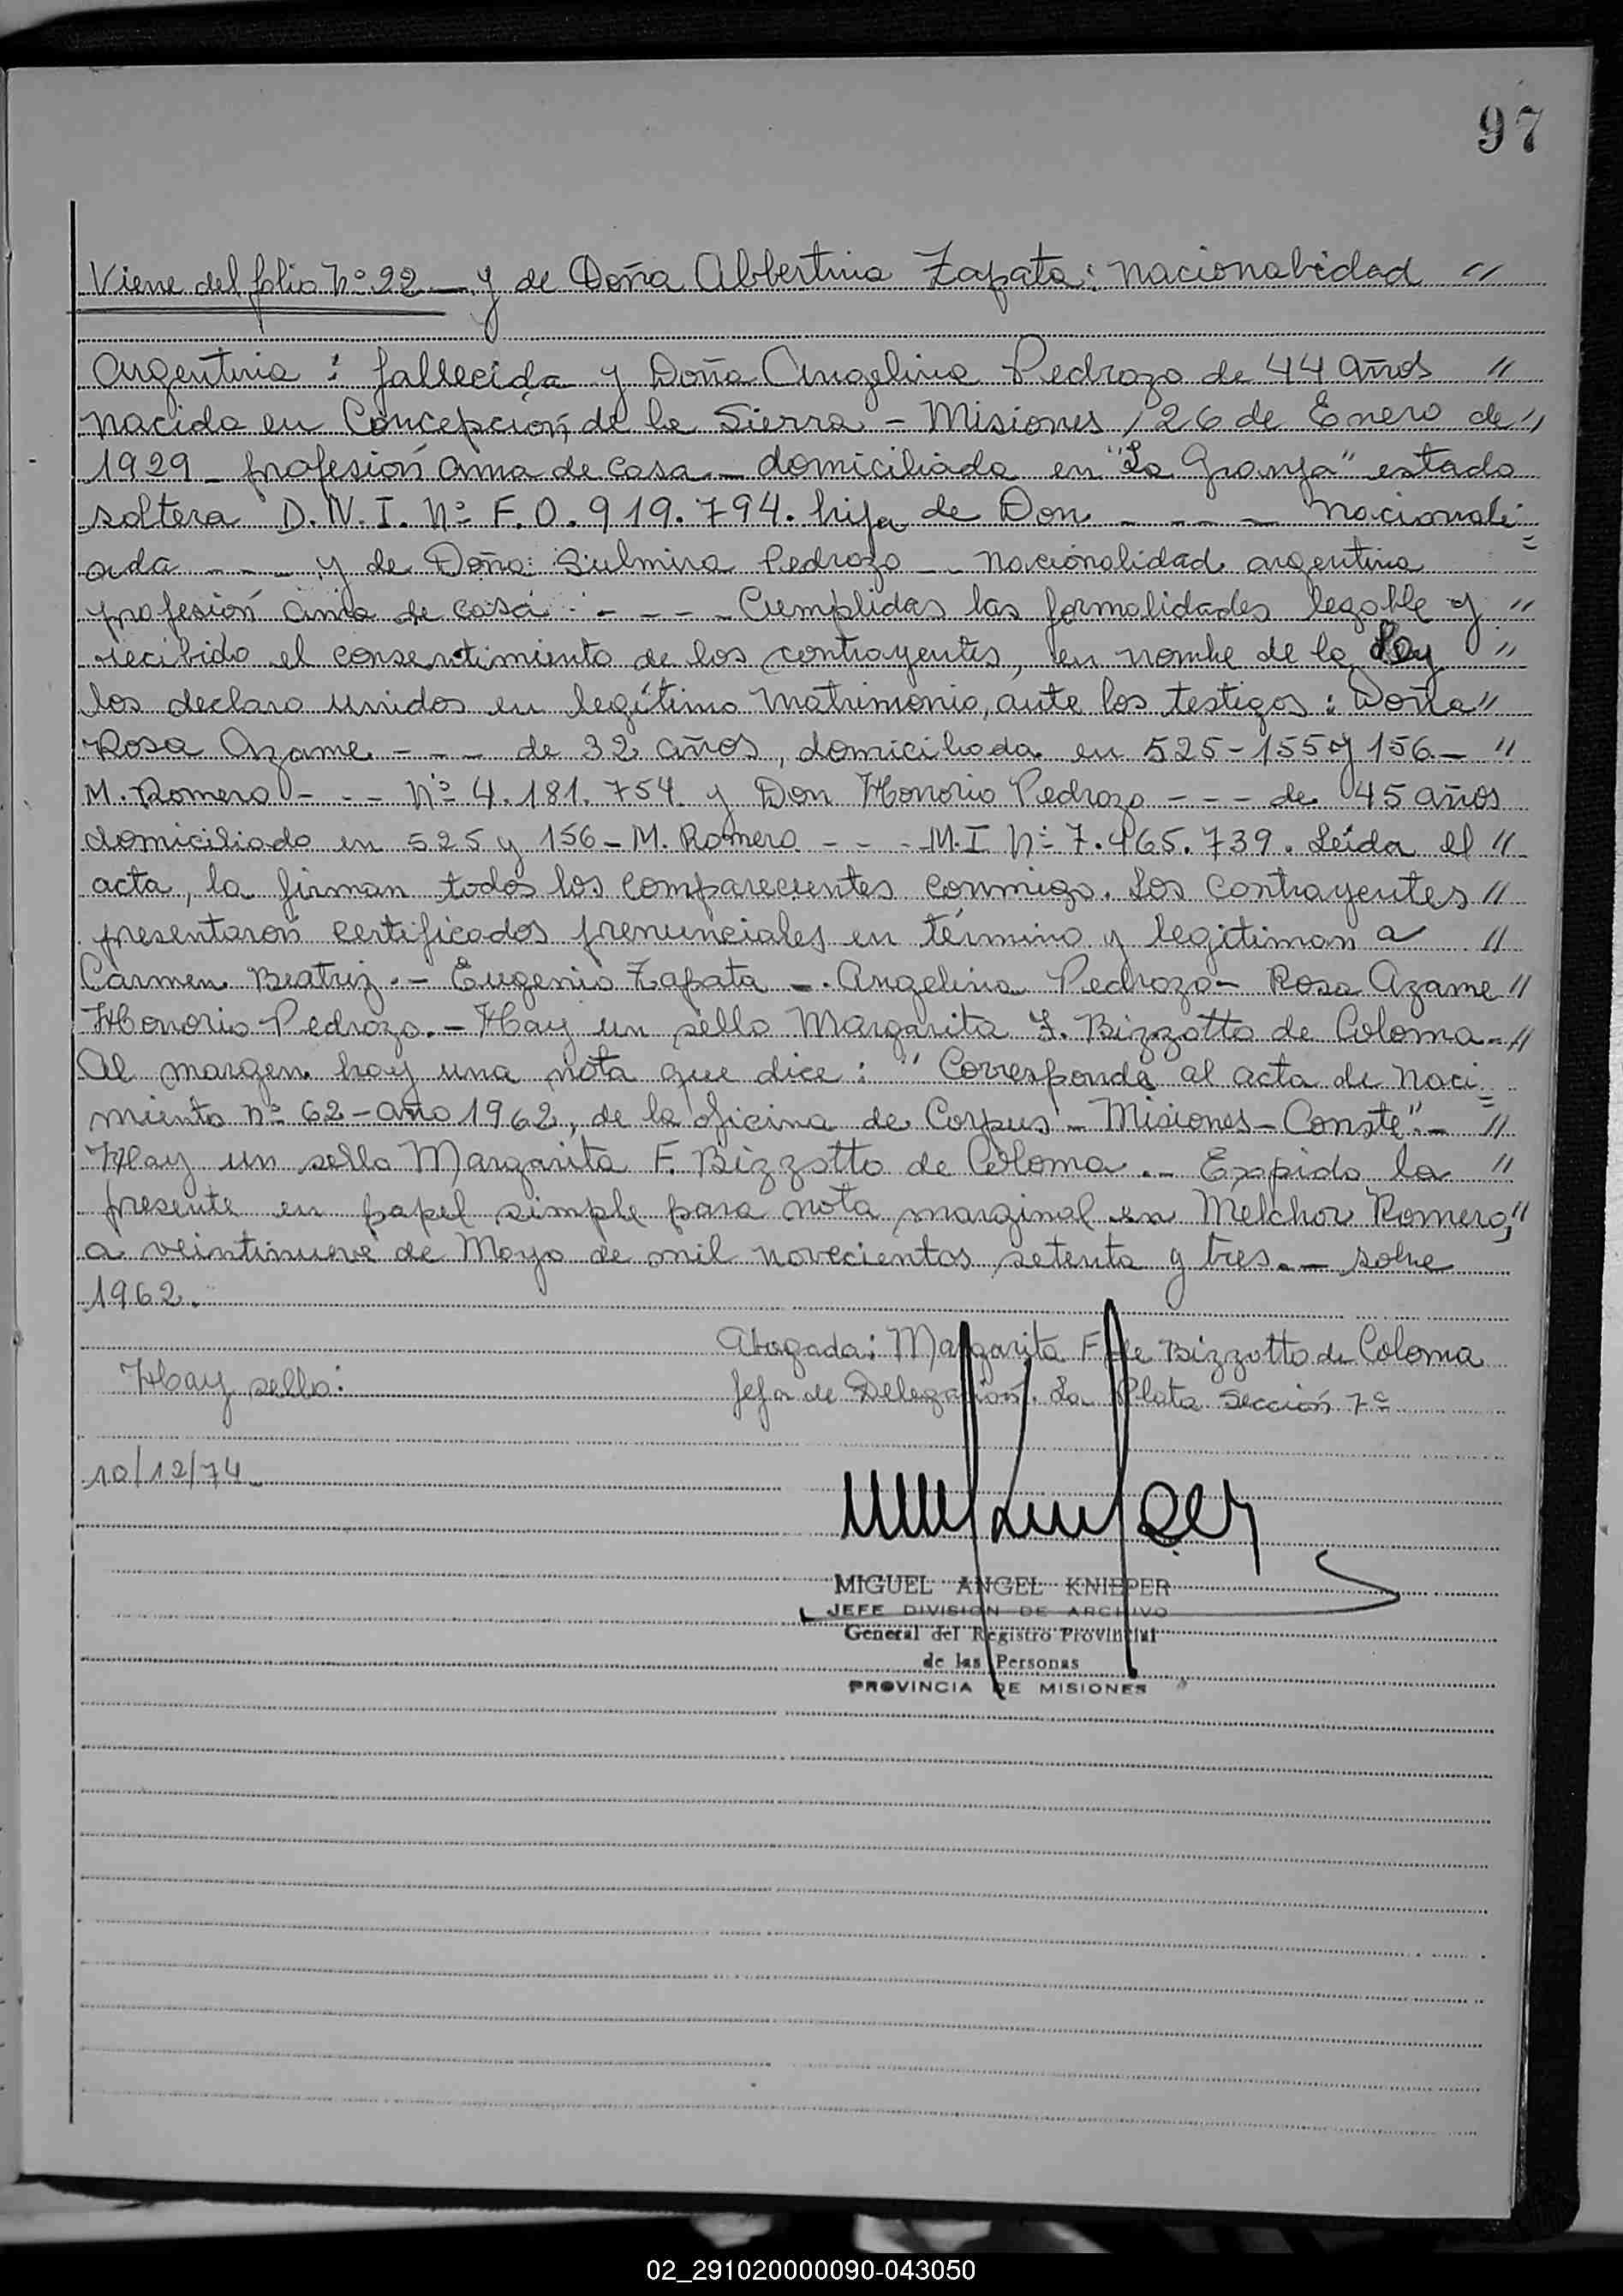 97
Viene del folio Nº 22 — y de Doña Albertina Zapata: nacionalidad "
Argentina: fallecida y Doña Angelina Pedrozo de 44 años "
nacida en Concepción de la Sierra - Misiones, 26 de Enero de "
1929 - profesión ama de casa - domiciliada en "La Granja" estado
soltera D.N.I. Nº F.0.919.794. hija de Don - - - - nacionali=
ada - - - y de Doña: Sulmira Pedrozo - - nacionalidad argentina
profesión ama de casa - - - - Cumplidas las formalidades legable y "
recibido el consentimiento de los contrayentes, en nombre de la Ley "
los declaro unidos en legítimo matrimonio, ante los testigos: Doña "
Rosa Azame - - - de 32 años, domiciliada en 525-155 y 156 - "
M. Romero - - - Nº 4.181.754 y Don Honorio Pedrozo - - - de 45 años
domiciliado en 525 y 156 - M. Romero - - - M.I Nº 7.465.739. Leída el "
acta, la firman todos los comparecientes conmigo. Los contrayentes "
presentaron certificados prenunciales en término y legitiman a "
Carmen Beatriz. - Eugenio Zapata -. Angelina Pedrozo - Rosa Azame "
Honorio Pedrozo. - Hay un sello Margarita F. Bizzotto de Coloma - "
Al margen hay una nota que dice: "Corresponde al acta de naci=
miento nº 62 - año 1962, de la oficina de Corpus - Misiones - Conste". - "
Hay un sello Margarita F. Bizzotto de Coloma. - Expido la "
presente en papel simple para nota marginal en Melchor Romero, "
a veintinueve de Mayo de mil novecientos setenta y tres. - sobre
1962.
Abogada: Margarita F. de Bizzotto de Coloma
Hay sello: Jefa de Delegación. La Plata Sección 7ª
10/12/74
MIGUEL ANGEL KNIEPER
JEFE DIVISION DE ARCHIVO
General del Registro Provincial
de las Personas
PROVINCIA DE MISIONES
02_291020000090-043050